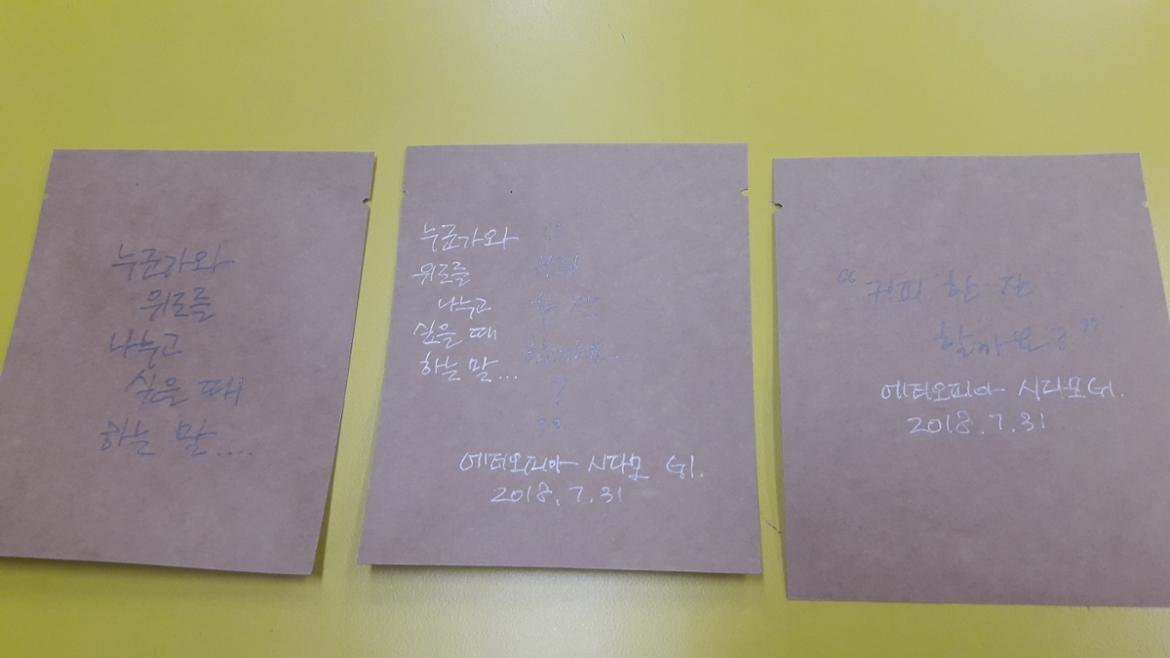 누군가와
위로를
나누고
싶을 때
하는 말....
누군가와
위로를
나누고
싶을 때
하는 말...
“
커피
한 잔
할까요..
?
”
에티오피아 시다모 G1.
2018.7.31
“커피 한 잔
할까요?”
에티오피아 시다모G1.
2018.7.31